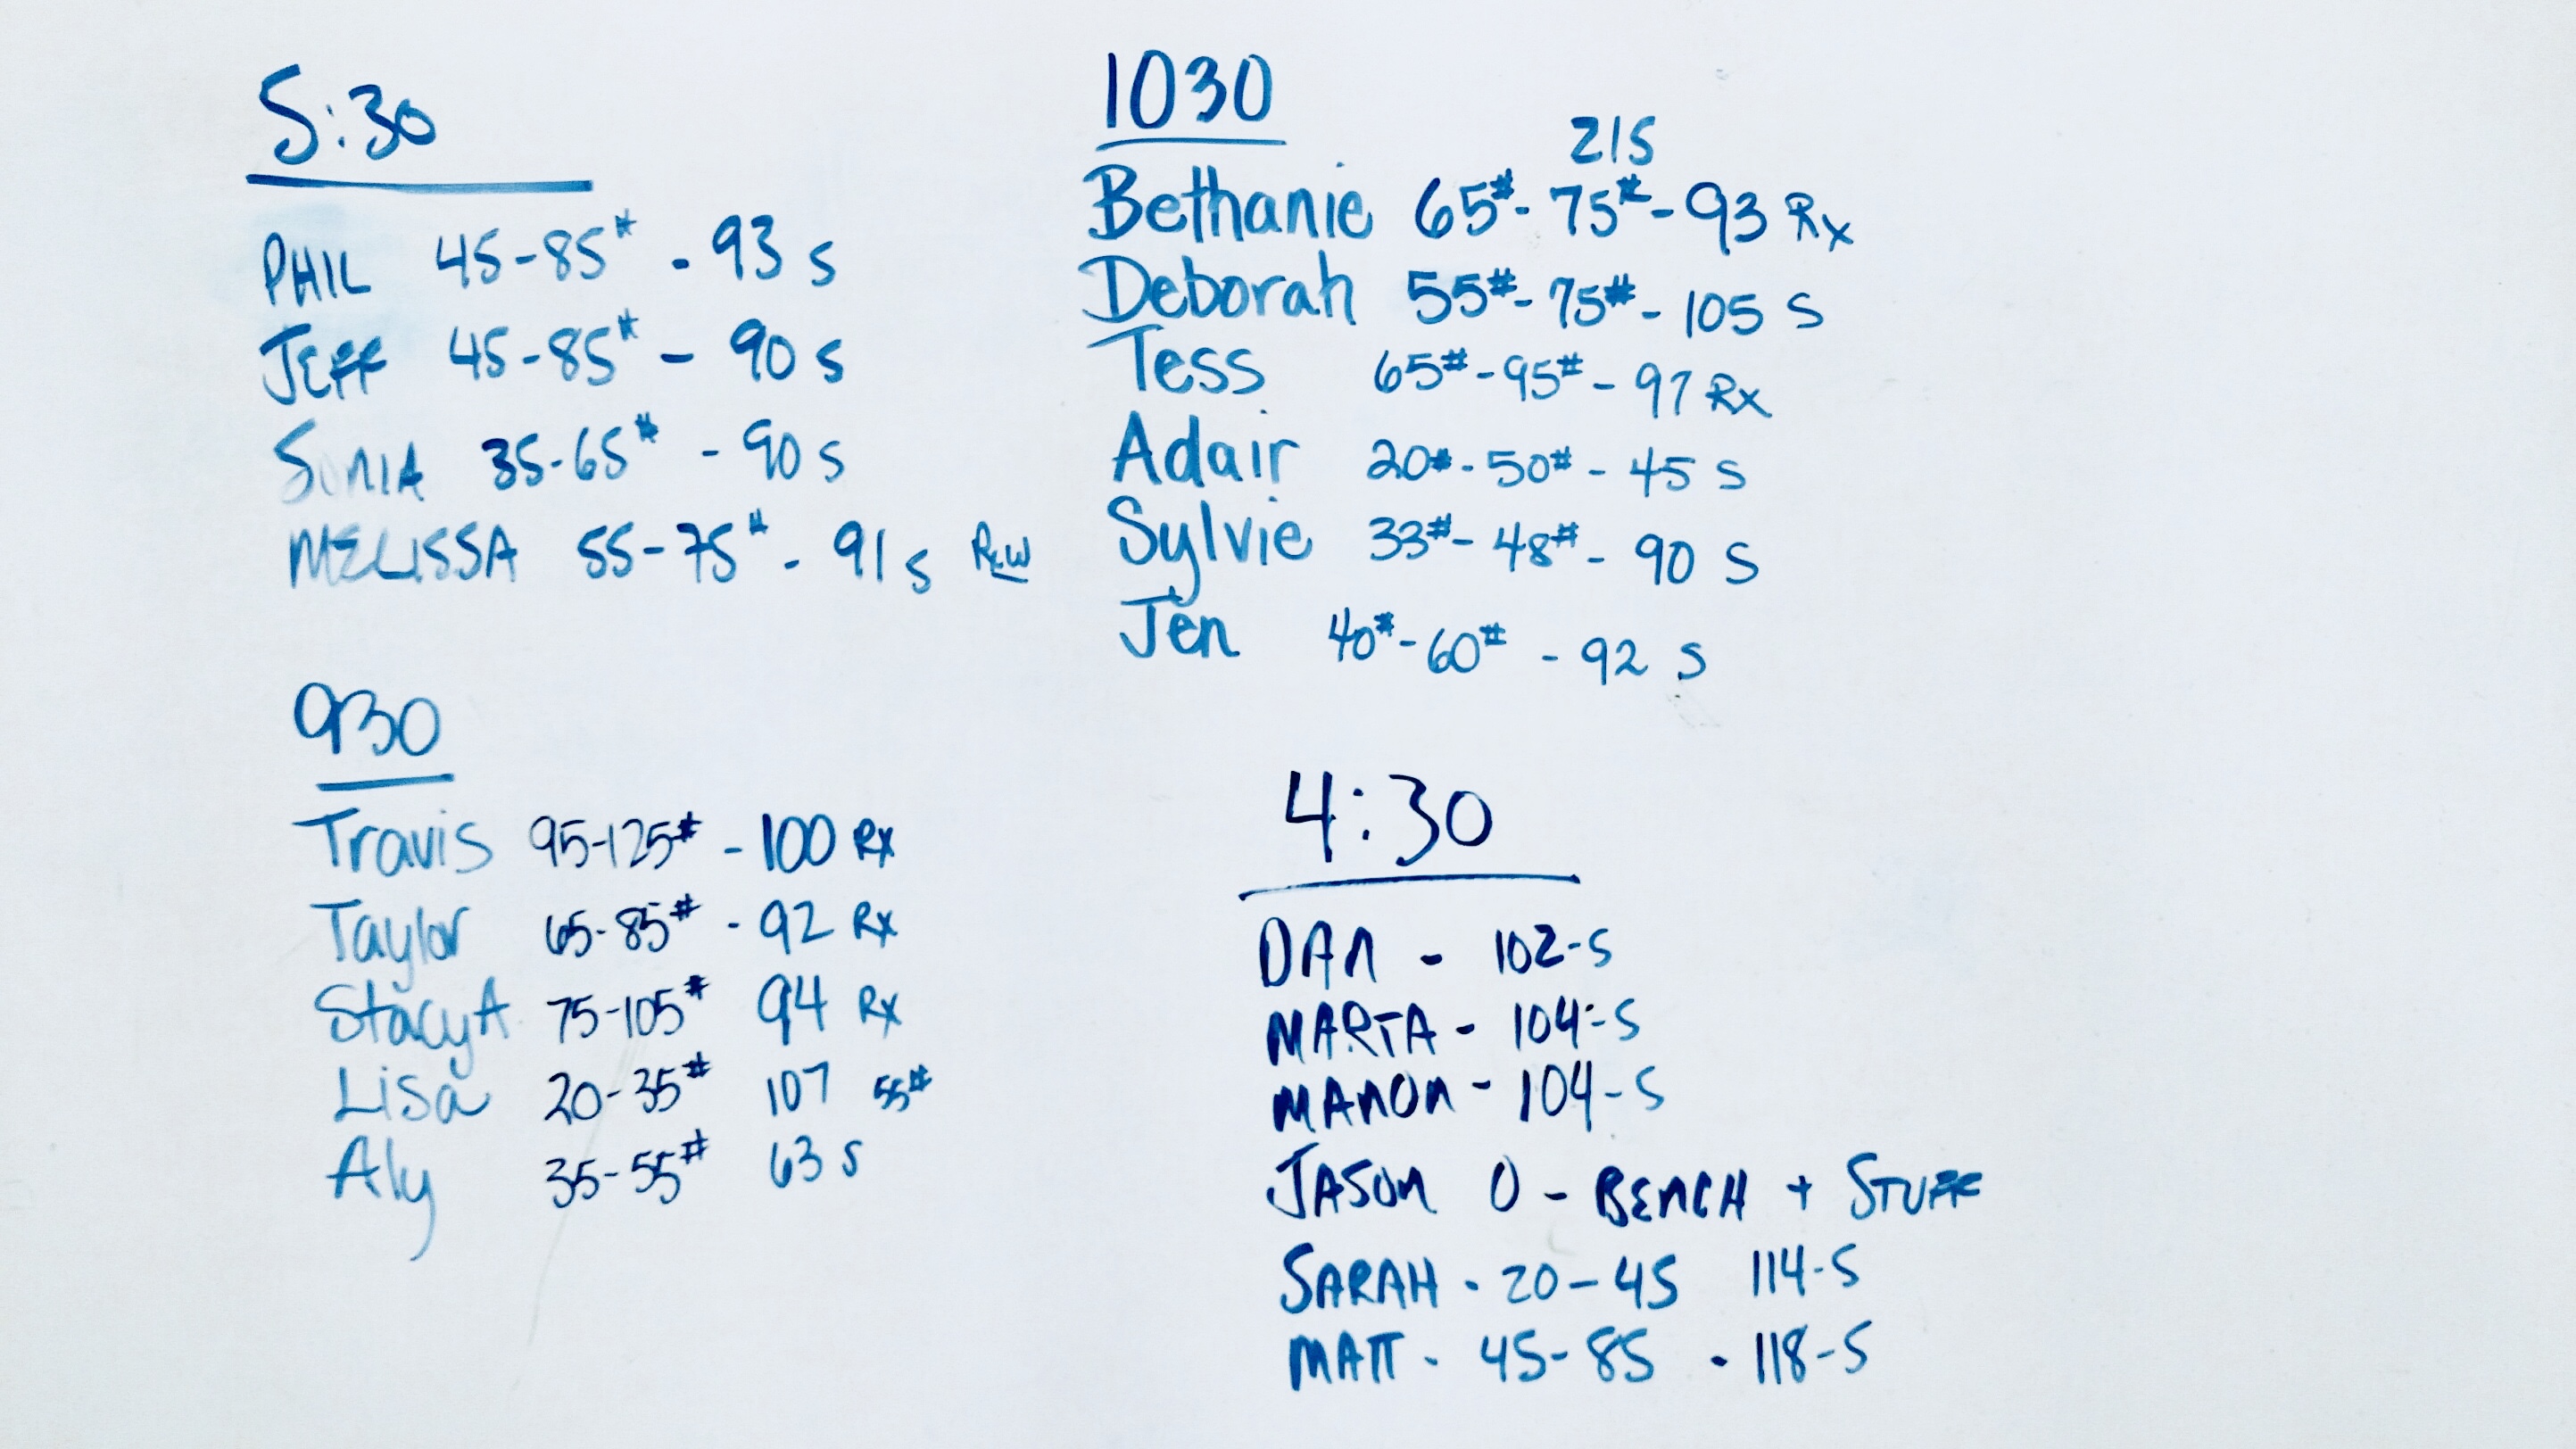 5:30
PHIL 45-85# - 93 S
JEFF 45-85# - 90 S
SONIA 35-65# - 90 S
MELISSA 55-75# - 91 S
930
Travis 95-125# - 100 Rx
Taylor 65-85# - 92 Rx
Stacy A 75-105# 94 Rx
Lisa 20-35# 107 55#
Aly 35-55# 63 S
1030
215
Bethanie 65#- 75#- 93 Rx
Deborah 55#- 75#- 105 S
Tess 65#-95#- 97 Rx
Adair 20#-50#- 45 S
Sylvie 33#- 48#- 90 S
Jen 40#-60# - 92 S
4:30
DAN - 102-S
MARTA - 104-S
MANON - 104-S
JASON 0 - BENCH + STUFF
SARAH - 20-45 114-S
MATT - 45-85 - 118-S